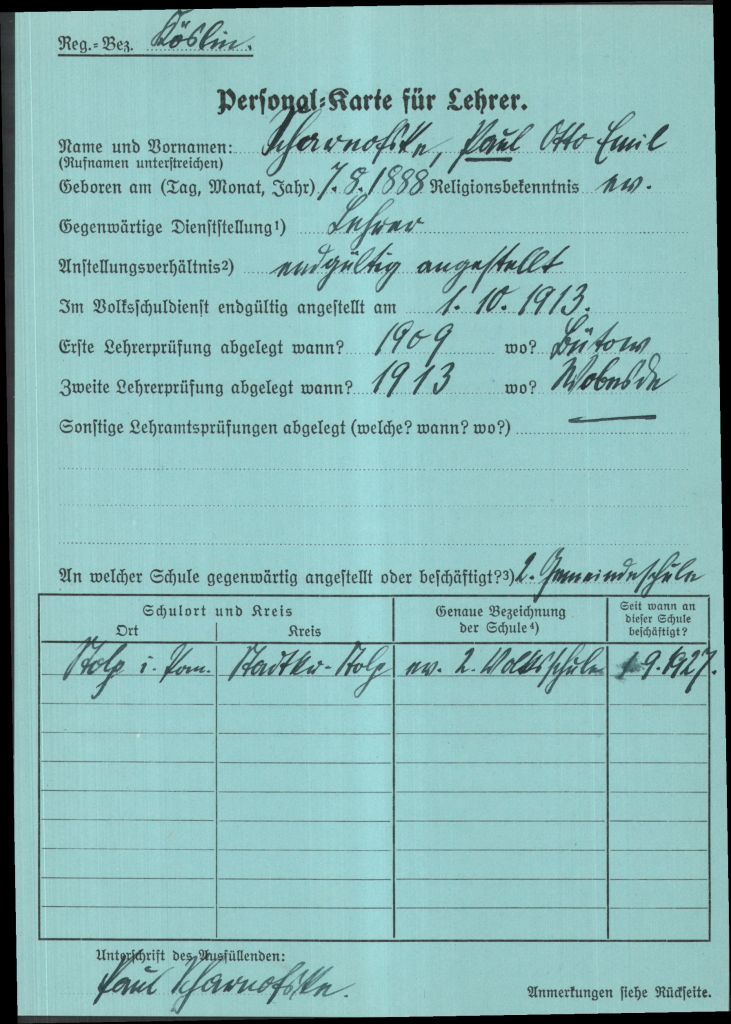 Reg.-Bez. Köslin.
Personal-Karte für Lehrer.
Name und Vornamen: Scharnofske, Paul Otto Emil
(Rufnamen unterstreichen)
Geboren am (Tag, Monat, Jahr) 7. 8. 1888 Religionsbekenntnis ev.
Gegenwärtige Dienststellung1) Lehrer
Anstellungsverhältnis2) endgültig angestellt
Im Volksschuldienst endgültig angestellt am 1. 10. 1913.
Erste Lehrerprüfung abgelegt wann? 1909 wo? Bütow
Zweite Lehrerprüfung abgelegt wann? 1913 wo? Wobesde
Sonstige Lehramtsprüfungen abgelegt (welche? wann? wo?)
An welcher Schule gegenwärtig angestellt oder beschäftigt?3) 2. Gemeindeschule
Schulort und Kreis Genaue Bezeichnung der Schule4) Seit wann an dieser Schule beschäftigt?
Ort Kreis
Stolp i. Pom. Stadtkr. Stolp ev. 2. Volksschule 1. 9. 1927.
Unterschrift des Ausfüllenden:
Paul Scharnofske.
Anmerkungen siehe Rückseite.